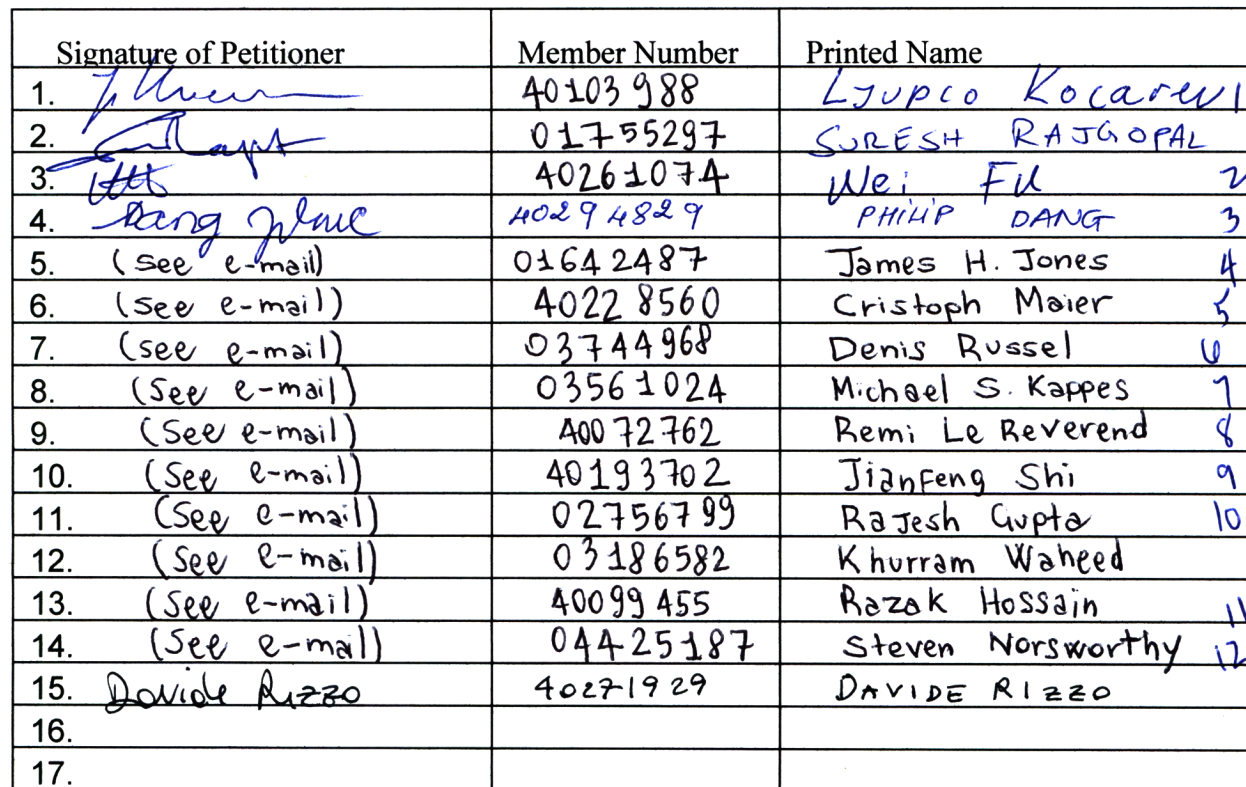 Signature of Petitioner Member Number Printed Name
1. 40103988 Ljupco Kocarev 1
2. 01755297 SURESH RAJGOPAL
3. 40261074 Wei FU 2
4. Dang 40294829 PHILIP DANG 3
5. (see e-mail) 01642487 James H. Jones 4
6. (see e-mail) 40228560 Cristoph Maier 5
7. (see e-mail) 03744968 Denis Russel 6
8. (See e-mail) 03561024 Michael S. Kappes 7
9. (See e-mail) 40072762 Remi Le Reverend 8
10. (See e-mail) 40193702 Jianfeng Shi 9
11. (See e-mail) 02756799 Rajesh Gupta 10
12. (See e-mail) 03186582 Khurram Waheed
13. (See e-mail) 40099455 Razak Hossain 11
14. (See e-mail) 04425187 Steven Norsworthy 12
15. Davide Rizzo 40271929 DAVIDE RIZZO
16.
17.